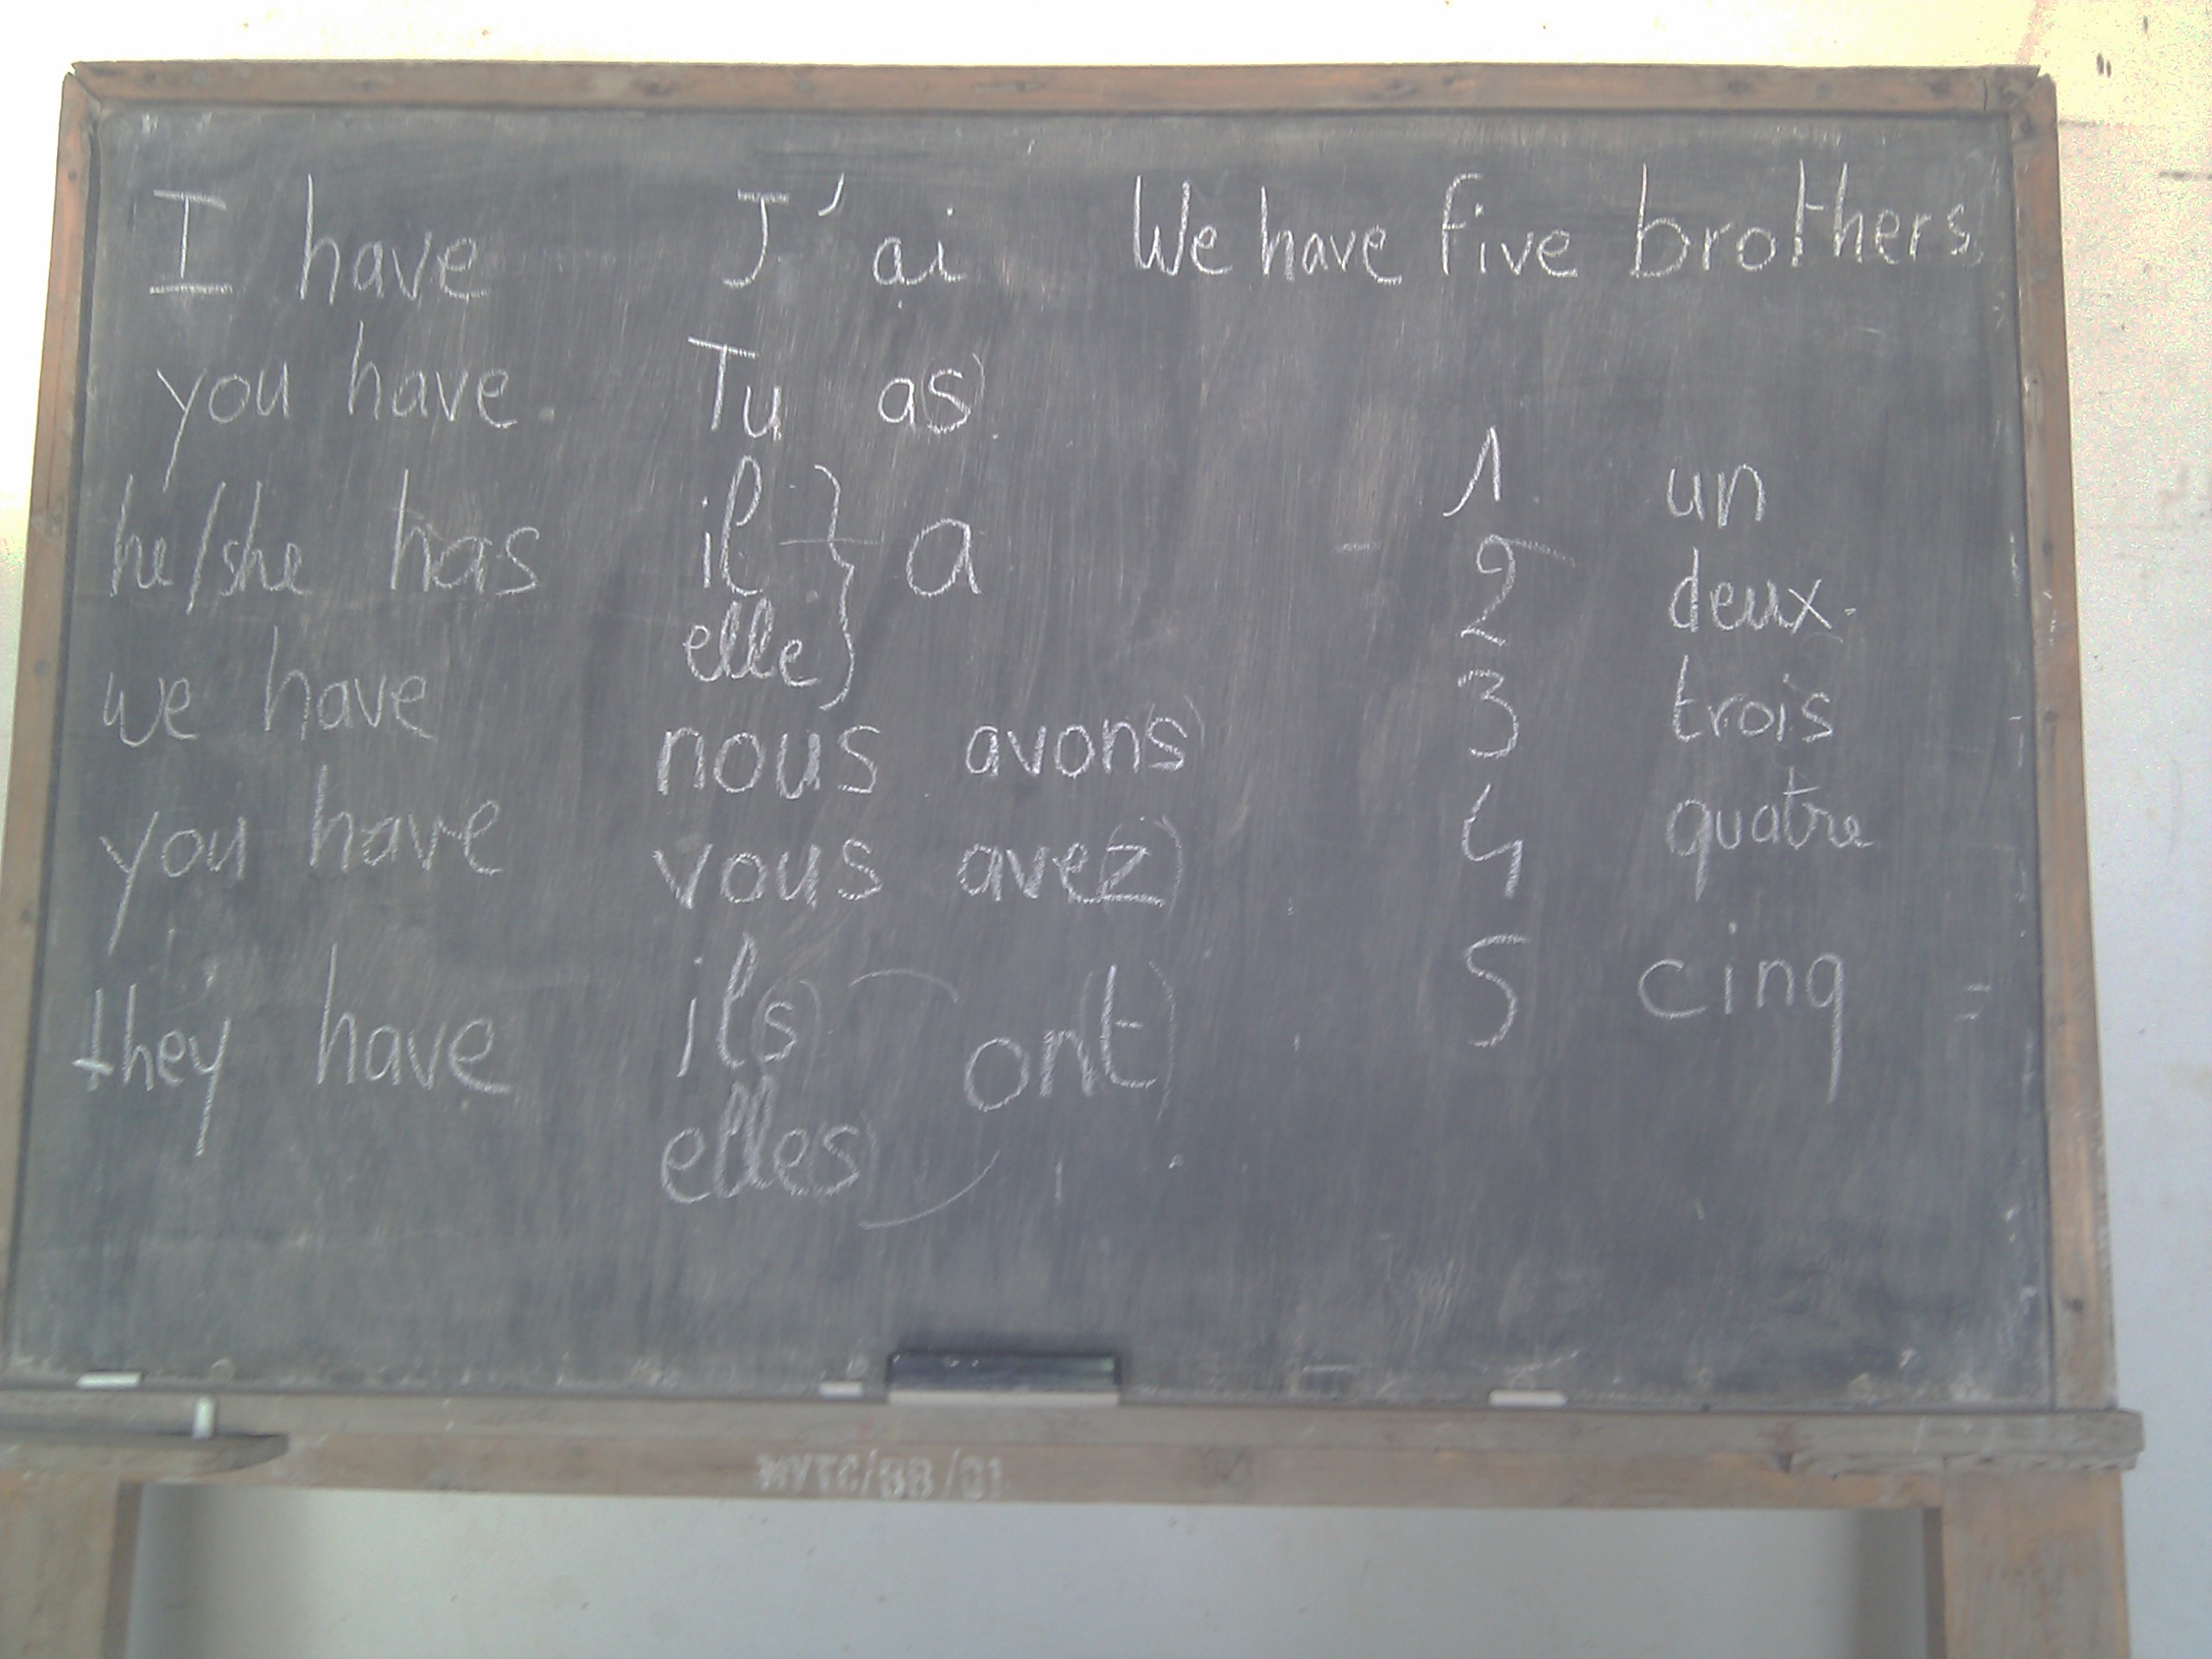 I have J'ai We have five brothers
you have. Tu as)
he/she has il } a
elle)
we have nous avons)
you have vous ave(z)
they have il(s) on(t)
elles)
1 un
2 deux
3 trois
4 quatre
5 cinq =
MVTC/BB/01